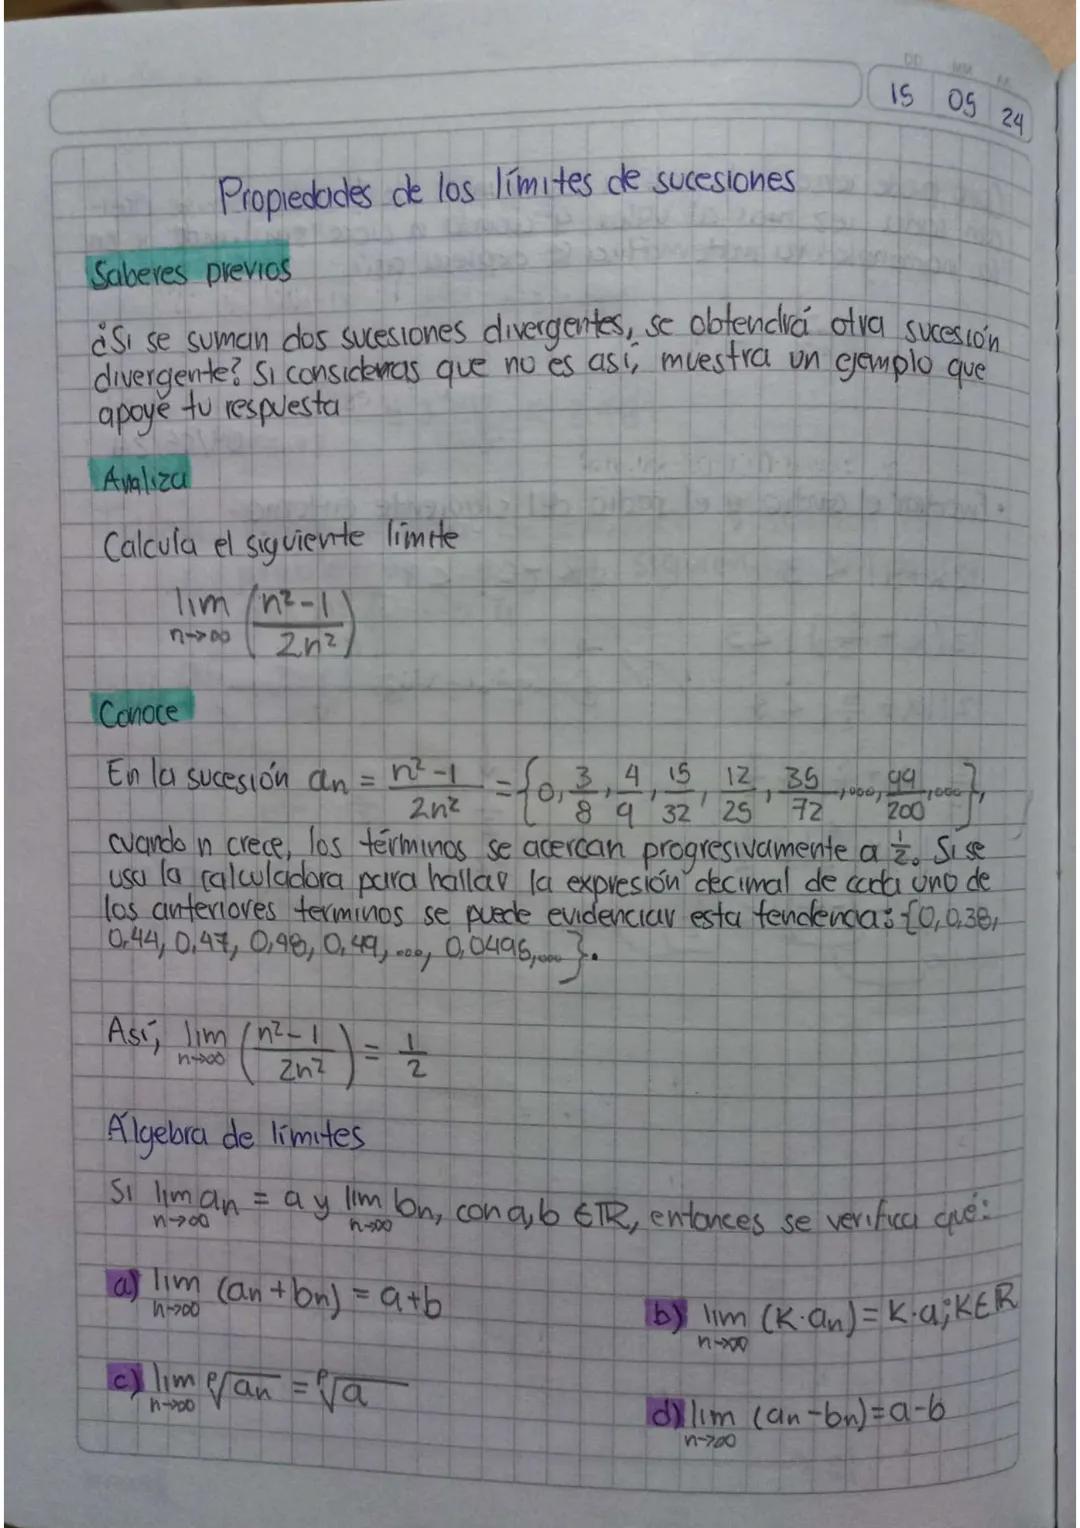 DD MM A
15 05 24
Propiedades de los límites de sucesiones
Saberes previos
¿Si se suman dos sucesiones divergentes, se obtendrá otra sucesión
divergente? Si consideras que no es así, muestra un ejemplo que
apoye tu respuesta
Analiza
Calcula el siguiente límite
lim n→∞ (n²-1 / 2n²)
Conoce
En la sucesión an = n²-1 / 2n² = {0, 3/8, 4/9, 15/32, 12/25, 35/72, ..., 99/200, ...},
cuando n crece, los términos se acercan progresivamente a 1/2. Si se
usa la calculadora para hallar la expresión decimal de cada uno de
los anteriores terminos se puede evidenciar esta tendencia: {0, 0,38,
0,44, 0,47, 0,48, 0,49, ..., 0,0495, ...}.
Así, lim n→∞ (n²-1 / 2n²) = 1/2
Álgebra de límites
Si lim n→∞ an = a y lim n→∞ bn, con a, b ∈ ℝ, entonces se verifica que:
a) lim n→∞ (an + bn) = a+b
b) lim n→∞ (K·an) = K·a; K∈ℝ
c) lim n→∞ ᵖ√an = ᵖ√a
d) lim n→∞ (an - bn) = a-b